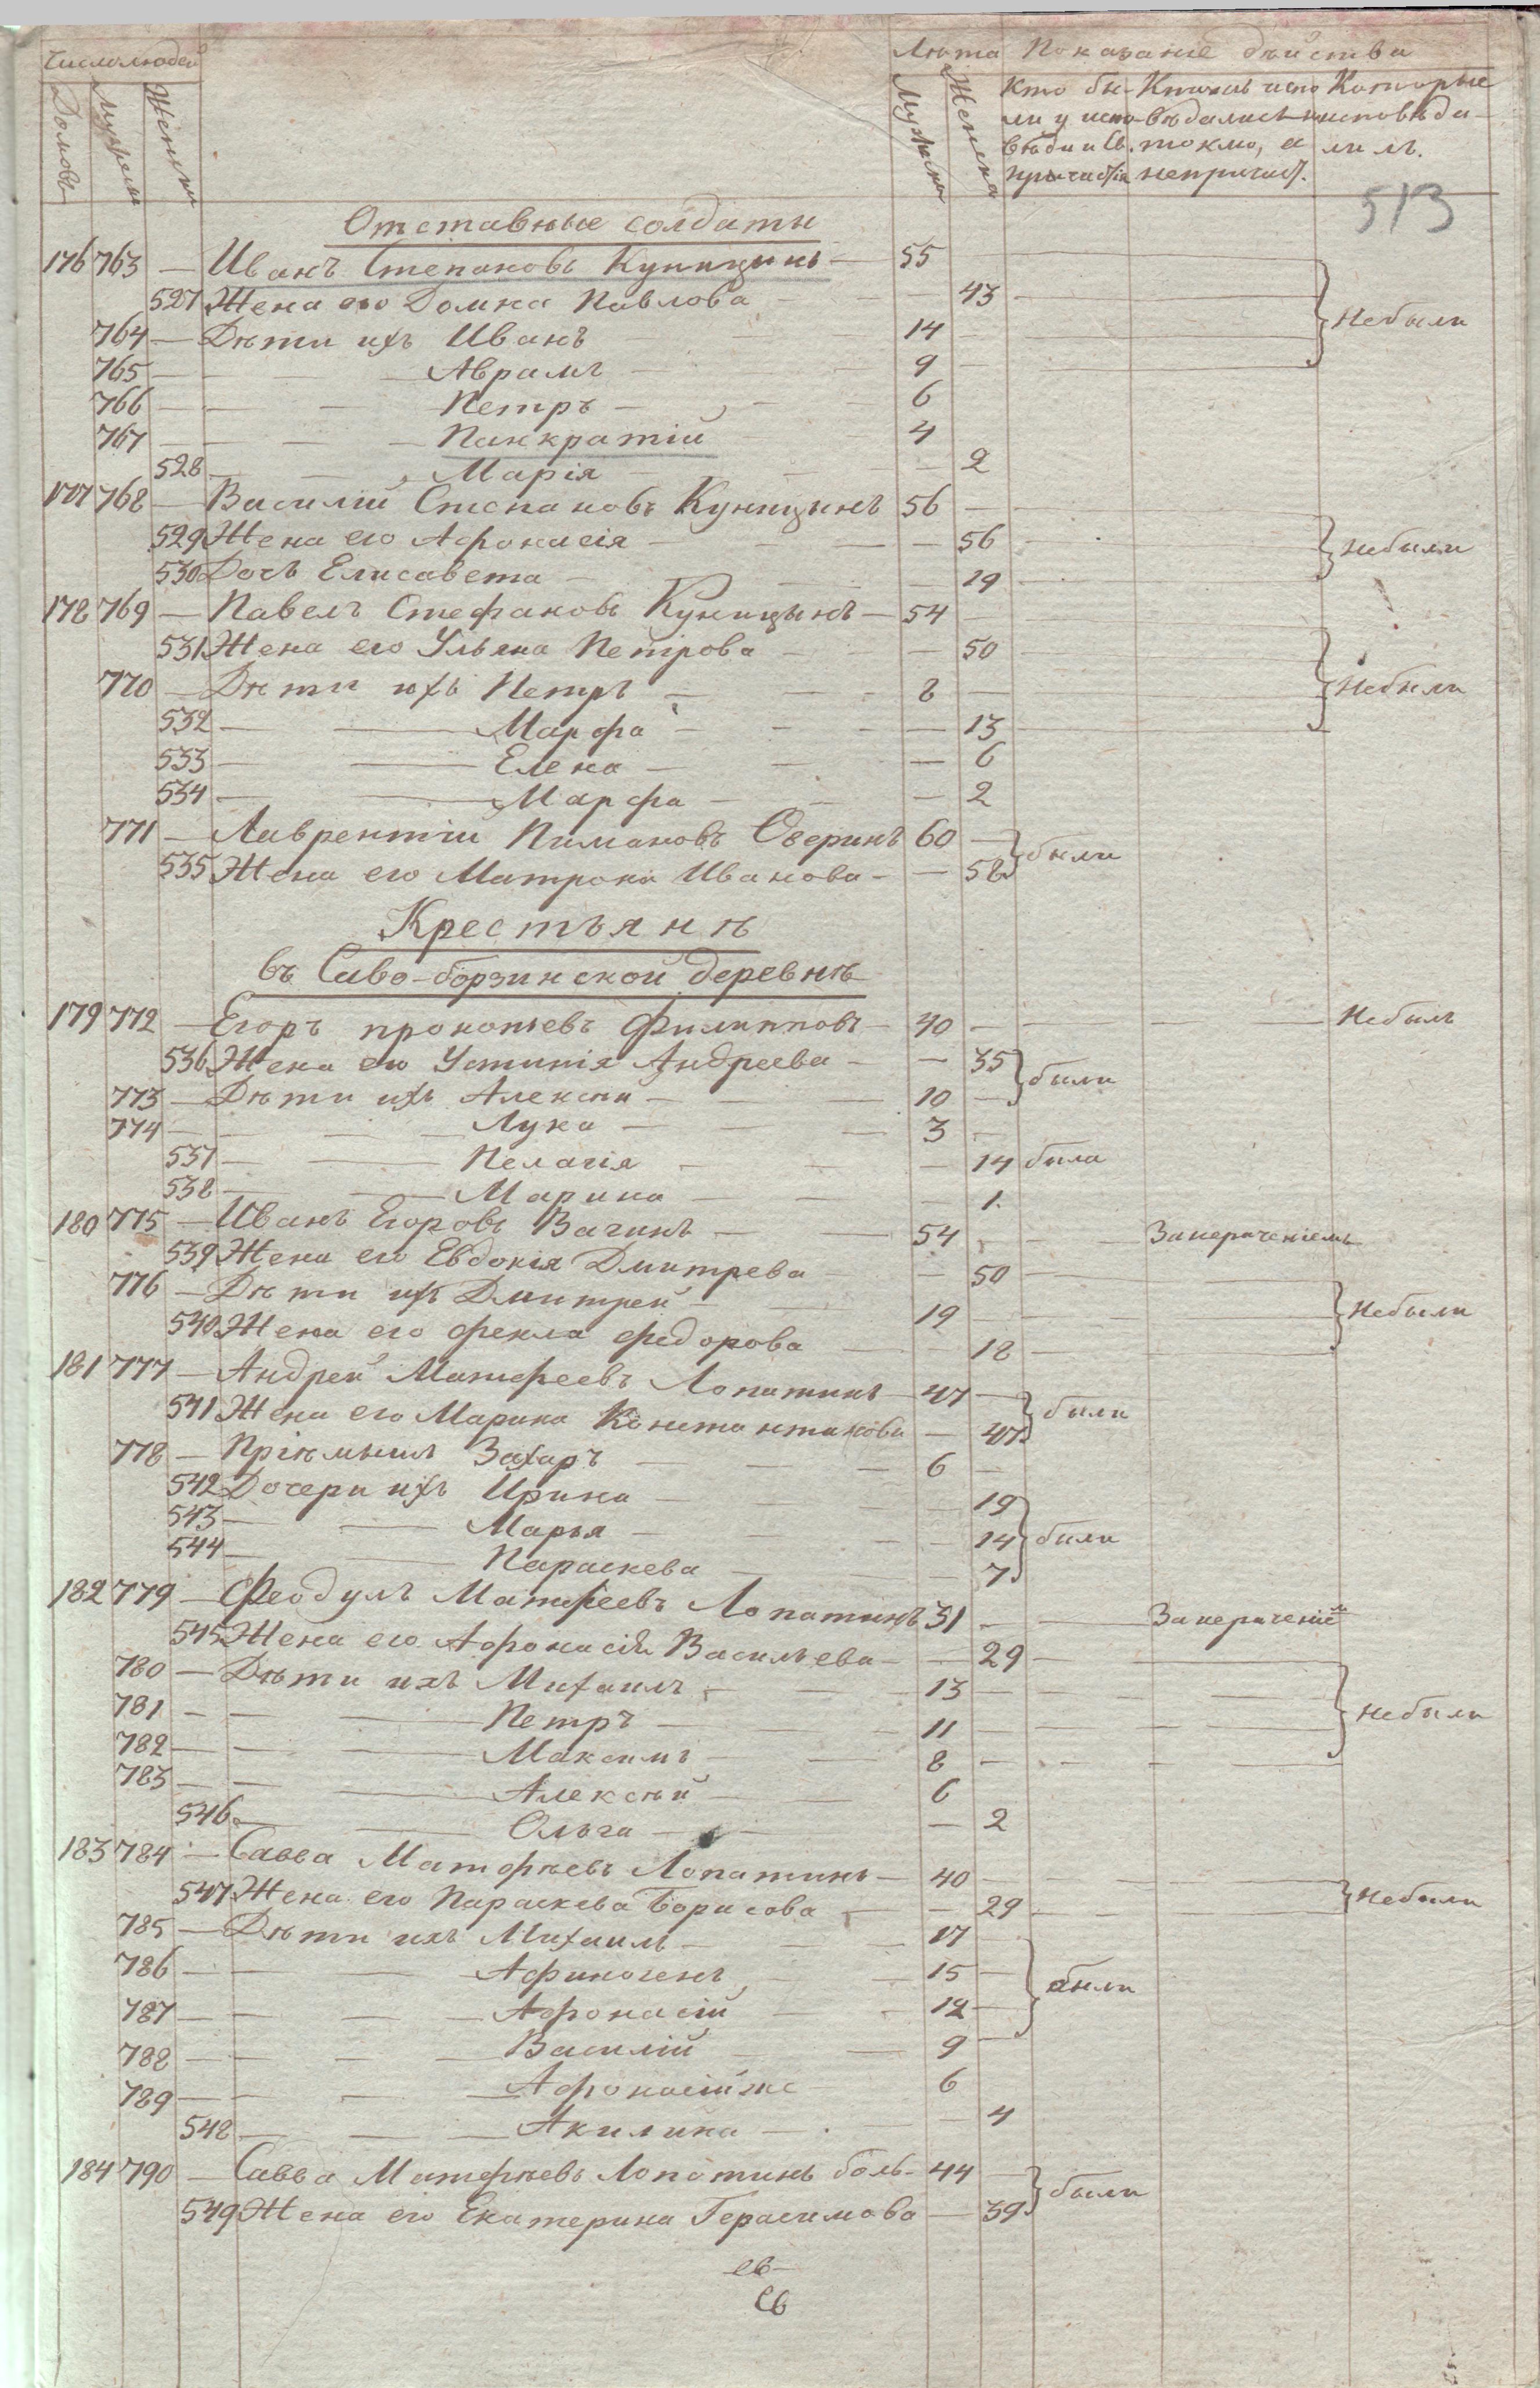 Число людей
Лѣта Показаніе дѣйства
Домовъ Мужеска Женска
Мужска Женска
Кто бы- Кто жъ испо Которые
ли у испо- вѣдались неисповѣда-
вѣди и Св. токмо, а лись.
причастія непричаст.
513
Отставные солдаты
176 763 — Иванъ Степановъ Куницынъ — 55
527 Жена его Домна Павлова 43 Небыли
764 — Дѣти ихъ Иванъ 14
765 — Аврамъ — 9
766 — Петръ — 6
767 — Панкратій 4
528 — Марія 2
177 768 — Василій Степановъ Куницынъ 56
529 Жена его Афонасія — 56 Небыли
530 Дочь Елисавета — 19
178 769 — Павелъ Стефановъ Куницынъ — 54
531 Жена его Ульяна Петрова 50
770 — Дѣти ихъ Петръ — 8 Небыли
532 — Марфа — 13
533 — Елена — 6
534 — Марфа — 2
771 — Лаврентій Пимановъ Оверинъ 60 были
535 Жена его Матрона Иванова — 58
Крестьянѣ
въ Саво-борзинской деревнѣ
179 772 — Егоръ прокопьевъ Филипповъ — 40 — Небылъ
536 Жена его Устинія Андреева — 35 были
773 — Дѣти ихъ Алексѣй — 10
774 — Лука — 3
537 — Пелагія — 14 была
538 — Марина — 1.
180 775 — Иванъ Егоровъ Вагинъ — 54 Занерачениемъ
539 Жена его Евдокія Дмитрева — 50
776 — Дѣти ихъ Дмитрей — 19 Небыли
540 Жена его Фекла Федорова — 18
181 777 — Андрей Матфеевъ Лопатинъ — 47 были
541 Жена его Марина Константинова — 47
778 — Пріемышъ Захаръ — 6
542 Дочери ихъ Ирина — 19
543 — Марья — 14 были
544 — Параскева — 7
182 779 — Феодулъ Матфеевъ Лопатинъ 31 — Занераченіем
545 Жена его Афонасія Васильева — 29
780 — Дѣти ихъ Михаилъ — 13
781 — Петръ — 11 Небыли
782 — Максимъ — 8
783 — Алексѣй — 6
546 — Ольга — 2
183 784 — Савва Матфѣевъ Лопатинъ — 40
547 Жена его Параскева Борисова — 29 Небыли
785 — Дѣти ихъ Михаилъ — 17
786 — Афиногенъ — 15 были
787 — Афонасій — 12
788 — Василій — 9
789 — Афонасій же 6
548 — Акилина — 4
184 790 — Савва Матфѣевъ Лопатинъ боль- 44 были
549 Жена его Екатерина Герасимова — 39